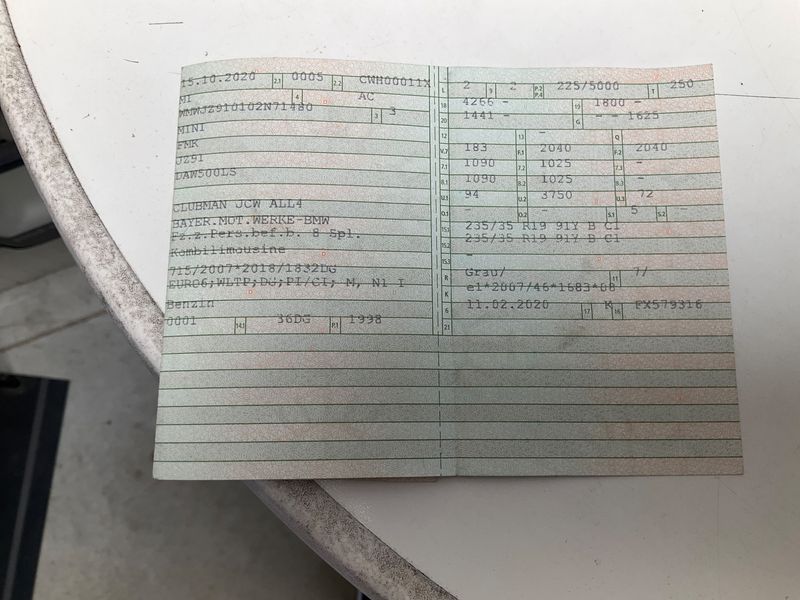 15.10.2020 2.1 0005 2.2 CWH00011X
MI 4 AC
WMWJZ910102N71480 3 3
MINI
FMK
JZ91
DAW500LS
CLUBMAN JCW ALL4
BAYER.MOT.WERKE-BMW
Fz.z.Pers.bef.b. 8 Spl.
Kombilimousine
715/2007*2018/1832DG
EURO6;WLTP;DG;PI/CI; M, N1 I
Benzin
0001 14.1 36DG P.1 1998
L 2 9 2 P.2 P.4 225/5000 T 250
18 4266 - 19 1800 -
20 1441 - G - - 1625
12 - 13 - Q
V.7 183 F.1 2040 F.2 2040
7.1 1090 7.2 1025 7.3 -
8.1 1090 8.2 1025 8.3 -
U.1 94 U.2 3750 U.3 72
O.1 - O.2 - S.1 5 S.2 -
15.1 235/35 R19 91Y B C1
15.2 235/35 R19 91Y B C1
15.3 -
R Grau/ 11 7/
K e1*2007/46*1683*08
6 11.02.2020 17 K 16 FX579316
21